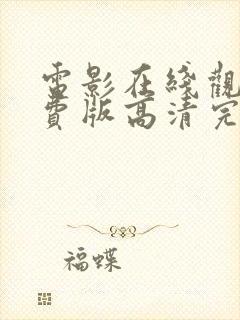 電影在綫觀
費版高清完
福蝶